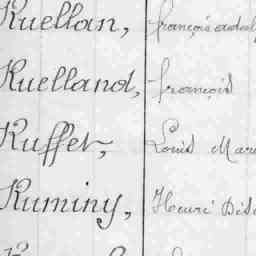 Ruellan, françois
Ruelland, françois
Ruffet, Louis
Ruminy, Henri